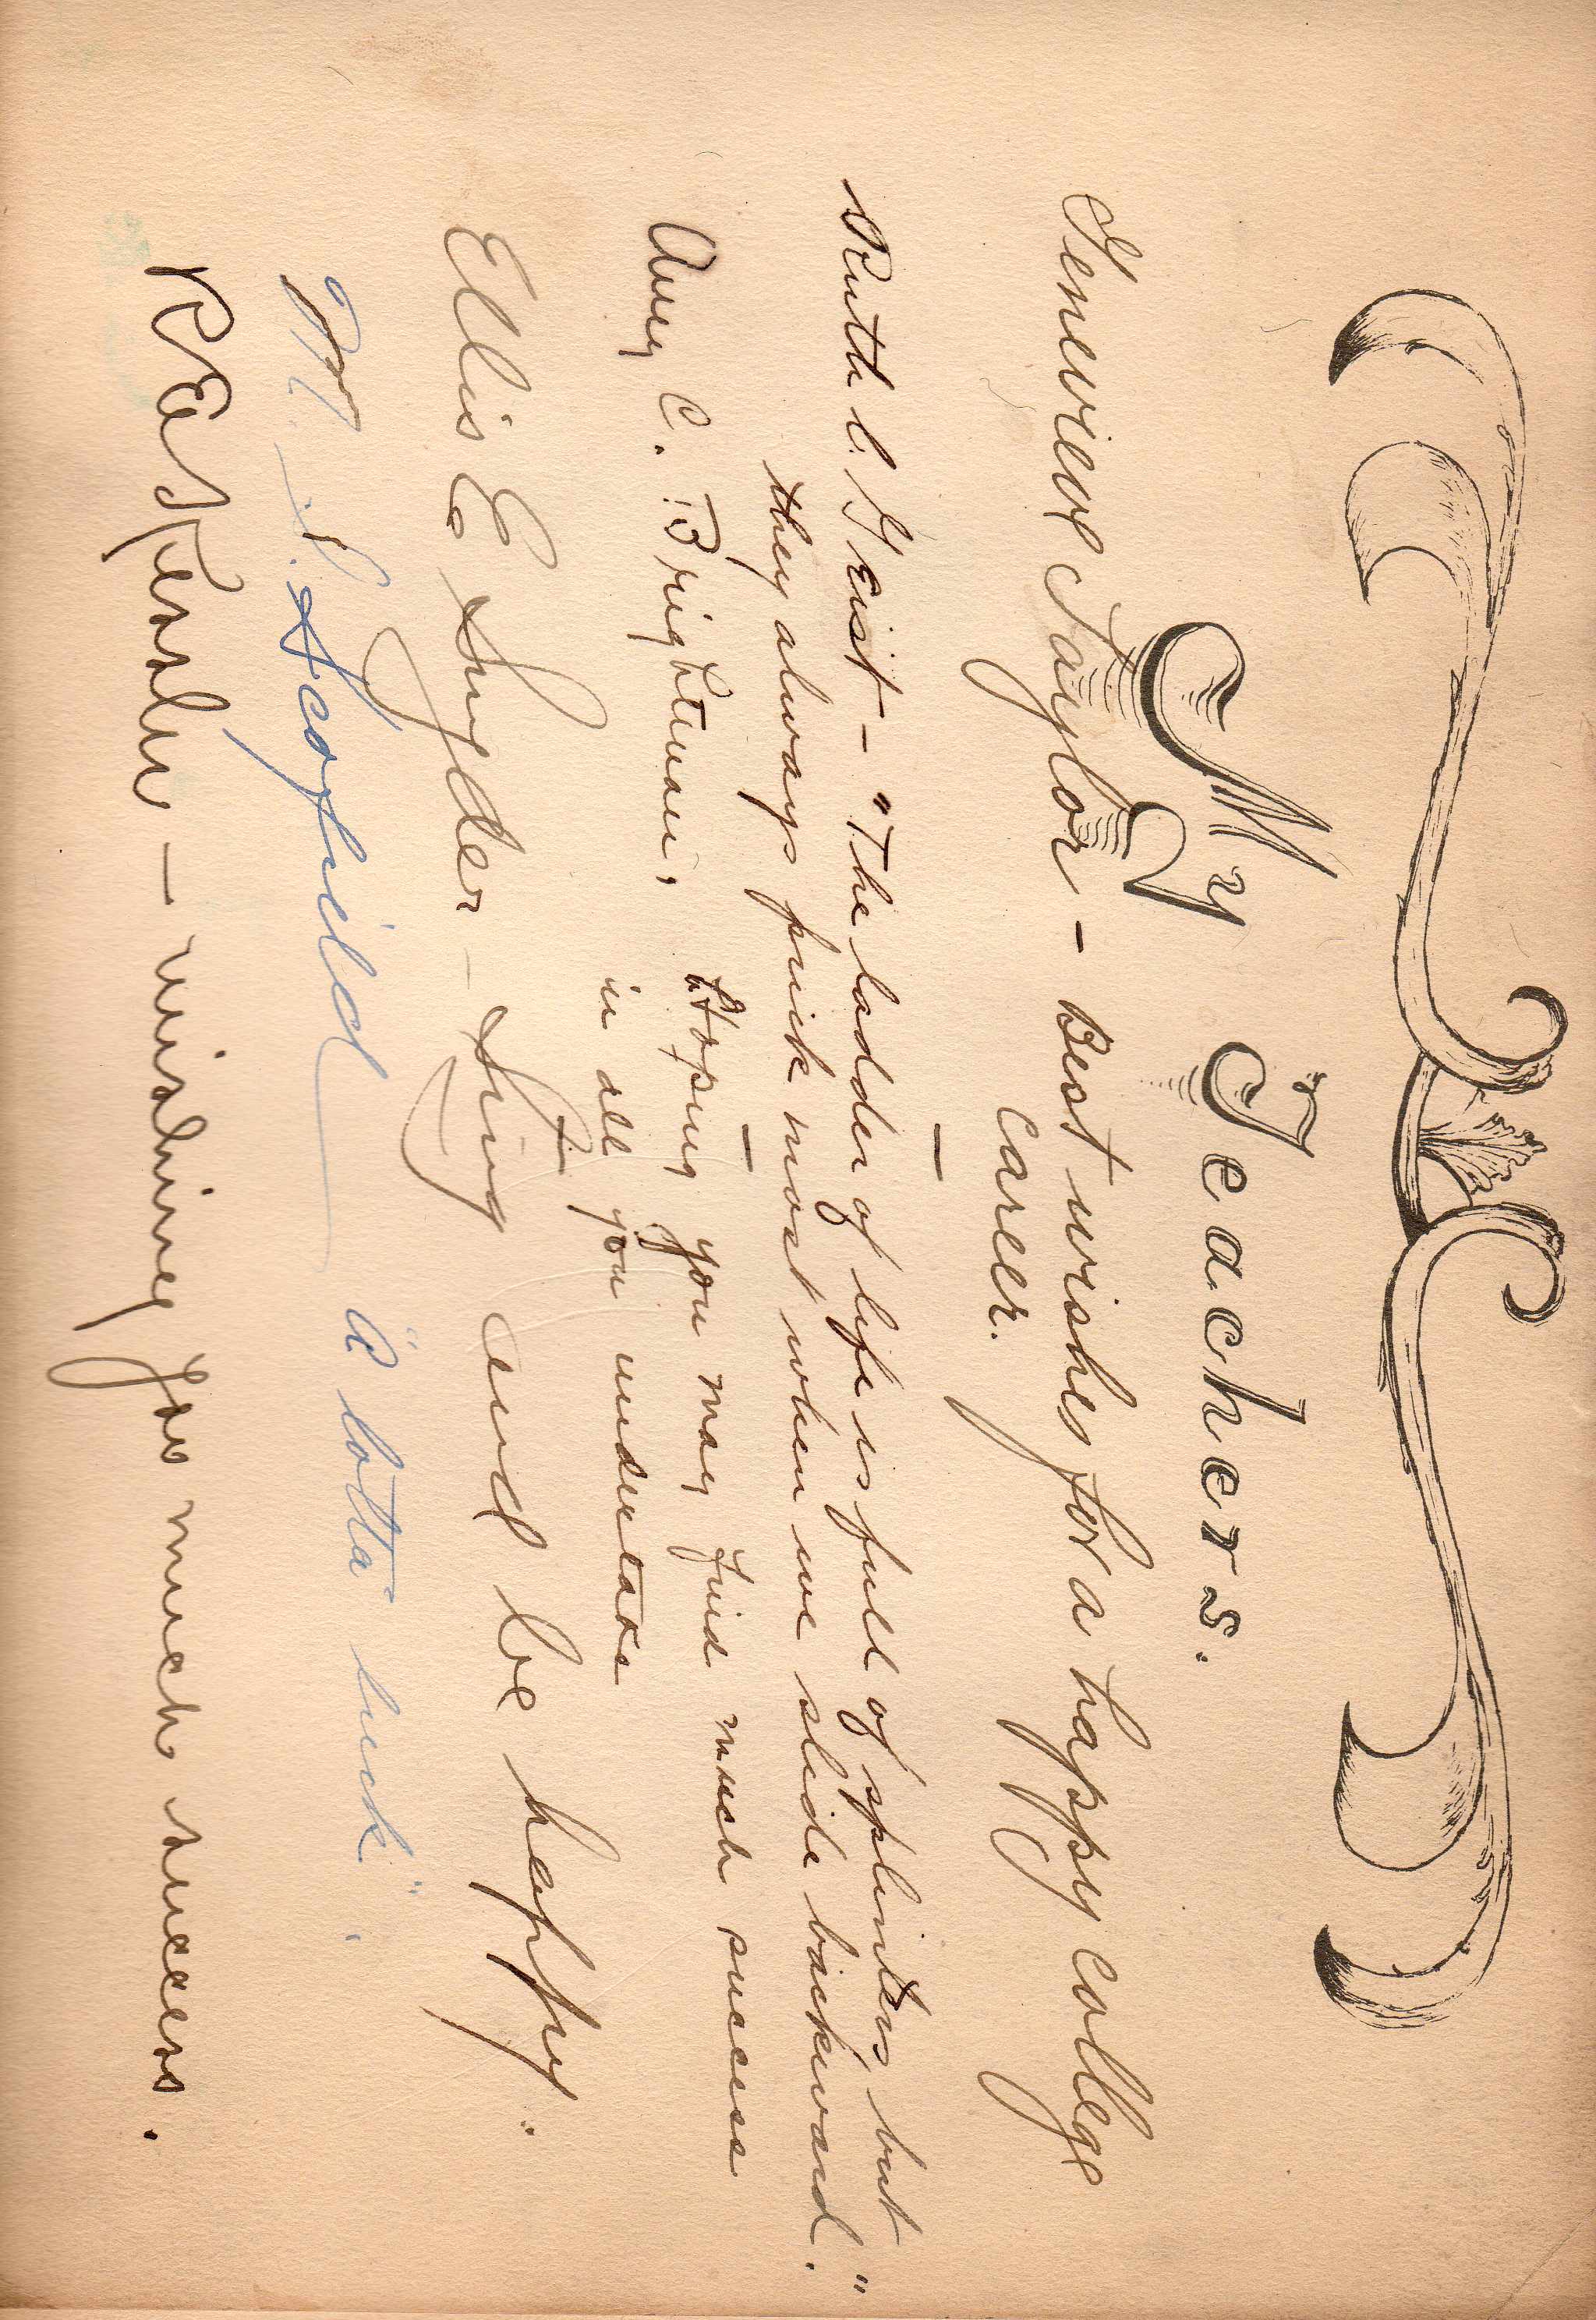 My Teachers.
Genevieve Saylor - Best wishes for a happy college
career.
Ruth C. Geist - "The ladder of life is full of splinters, but
they always prick most when we slide backward."
Amy C. Brightman, Hoping you may find much success
in all you undertake
Ellis E Snyder - Sing and be happy."
M. S. Scofield "A lotta luck".
- wishing you much success.